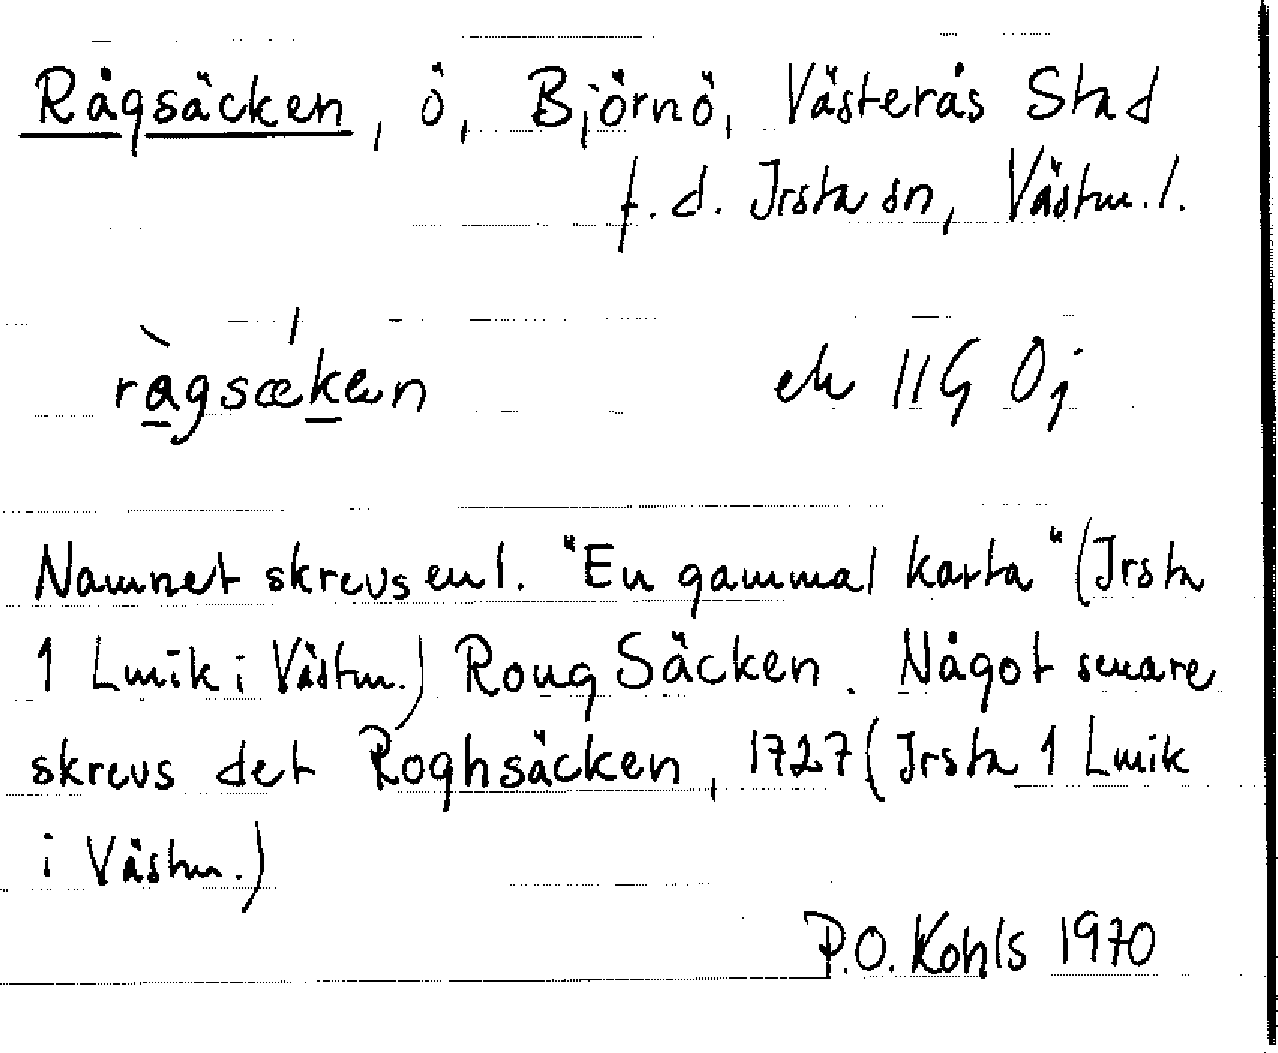 Rågsäcken, ö, Björnö, Västerås Stad
f.d. Irsta sn, Västm.l.
rågsækæn ek 11G 0j
Namnet skrevs enl. "En gammal karta" (Irsta
1 Lmik i Västm.) Roug Säcken. Något senare
skrevs det Roghsäcken, 1727 (Irsta 1 Lmik
i Västm.)
P.O. Kohls 1970